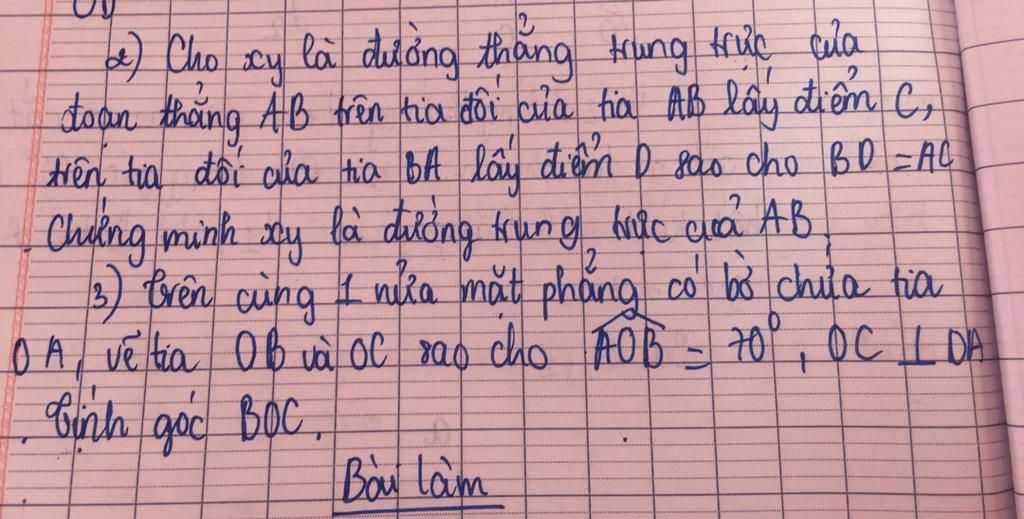 2) Cho xy là đường thẳng trung trực của
đoạn thẳng AB trên tia đối của tia AB lấy điểm C,
trên tia đối của tia BA lấy điểm D sao cho BD = AC
Chứng minh xy là đường trung trực của AB.
3) Trên cùng 1 nửa mặt phẳng có bờ chứa tia
OA, vẽ tia OB và OC sao cho AOB = 70°, OC ⊥ OA
. Tính góc BOC.
Bài làm